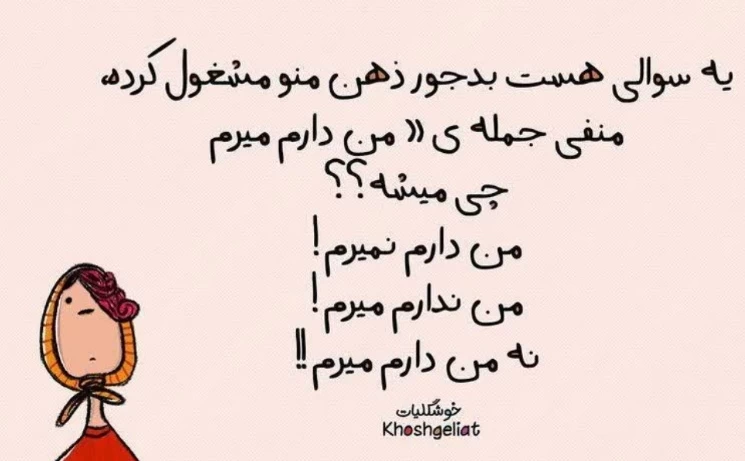 یه سوالی هست بدجور ذهن منو مشغول کرده،
منفی جمله ی « من دارم میرم
چی میشه؟؟
من دارم نمیرم!
من ندارم میرم!
نه من دارم میرم!!
خوشگلیات
Khoshgeliat